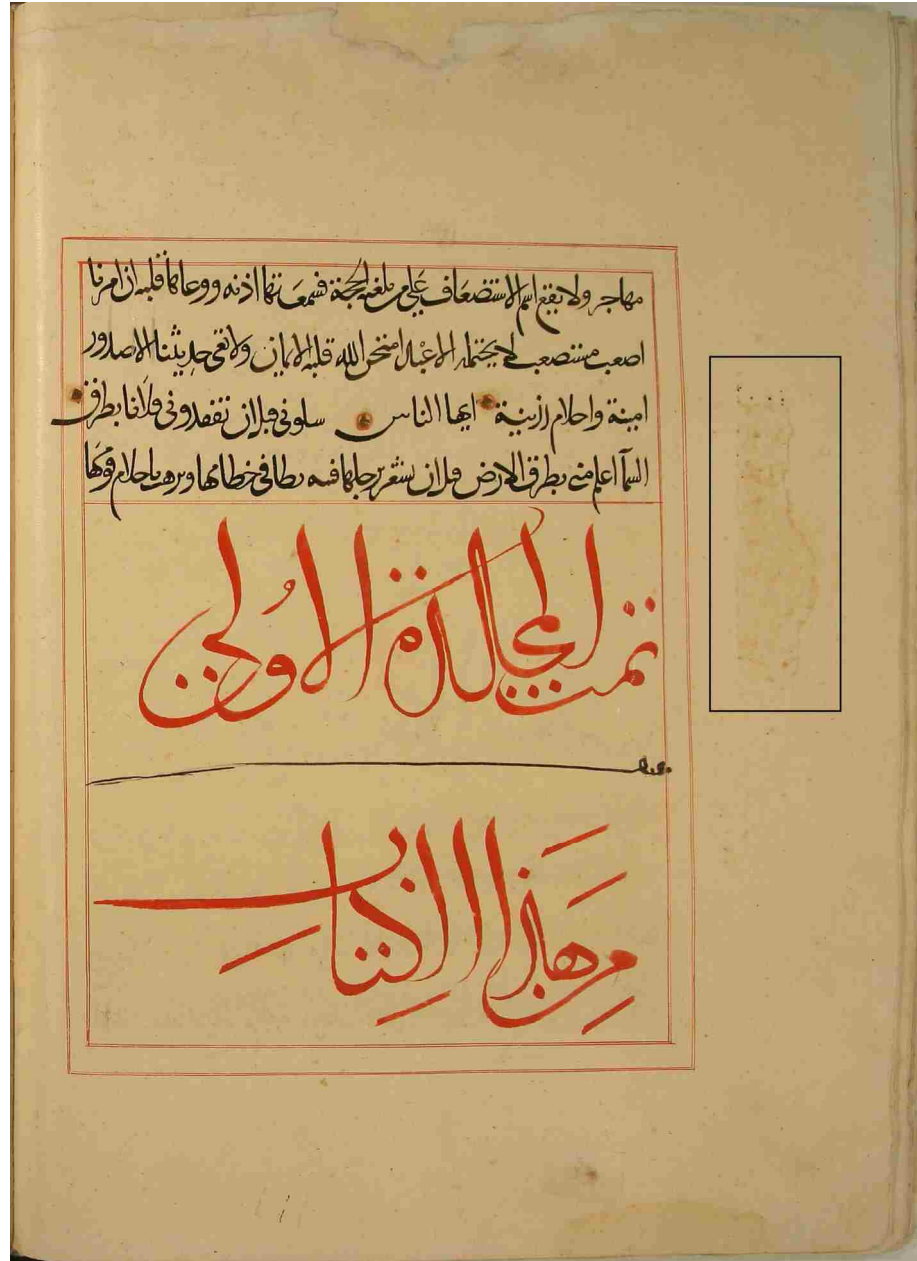 مهاجر ولا يقع اسم الاستضعاف على من بلغته الحجة فسمعتها اذنه ووعاها قلبه ان امرنا
اصعب مستصعب لا يحتمله الا عبد امتحن الله قلبه للايمان ولا تعى حديثنا الا صدور
امينة واحلام رزينة ايها الناس سلونى قبل ان تفقدونى فلانا بطرق
السمآ اعلم منى بطرق الارض قبل ان تشغر برجلها فتنه تطا فى خطامها وتذهب باحلام قومها
تمت المجلدة الاولى
من هاذا الكتاب